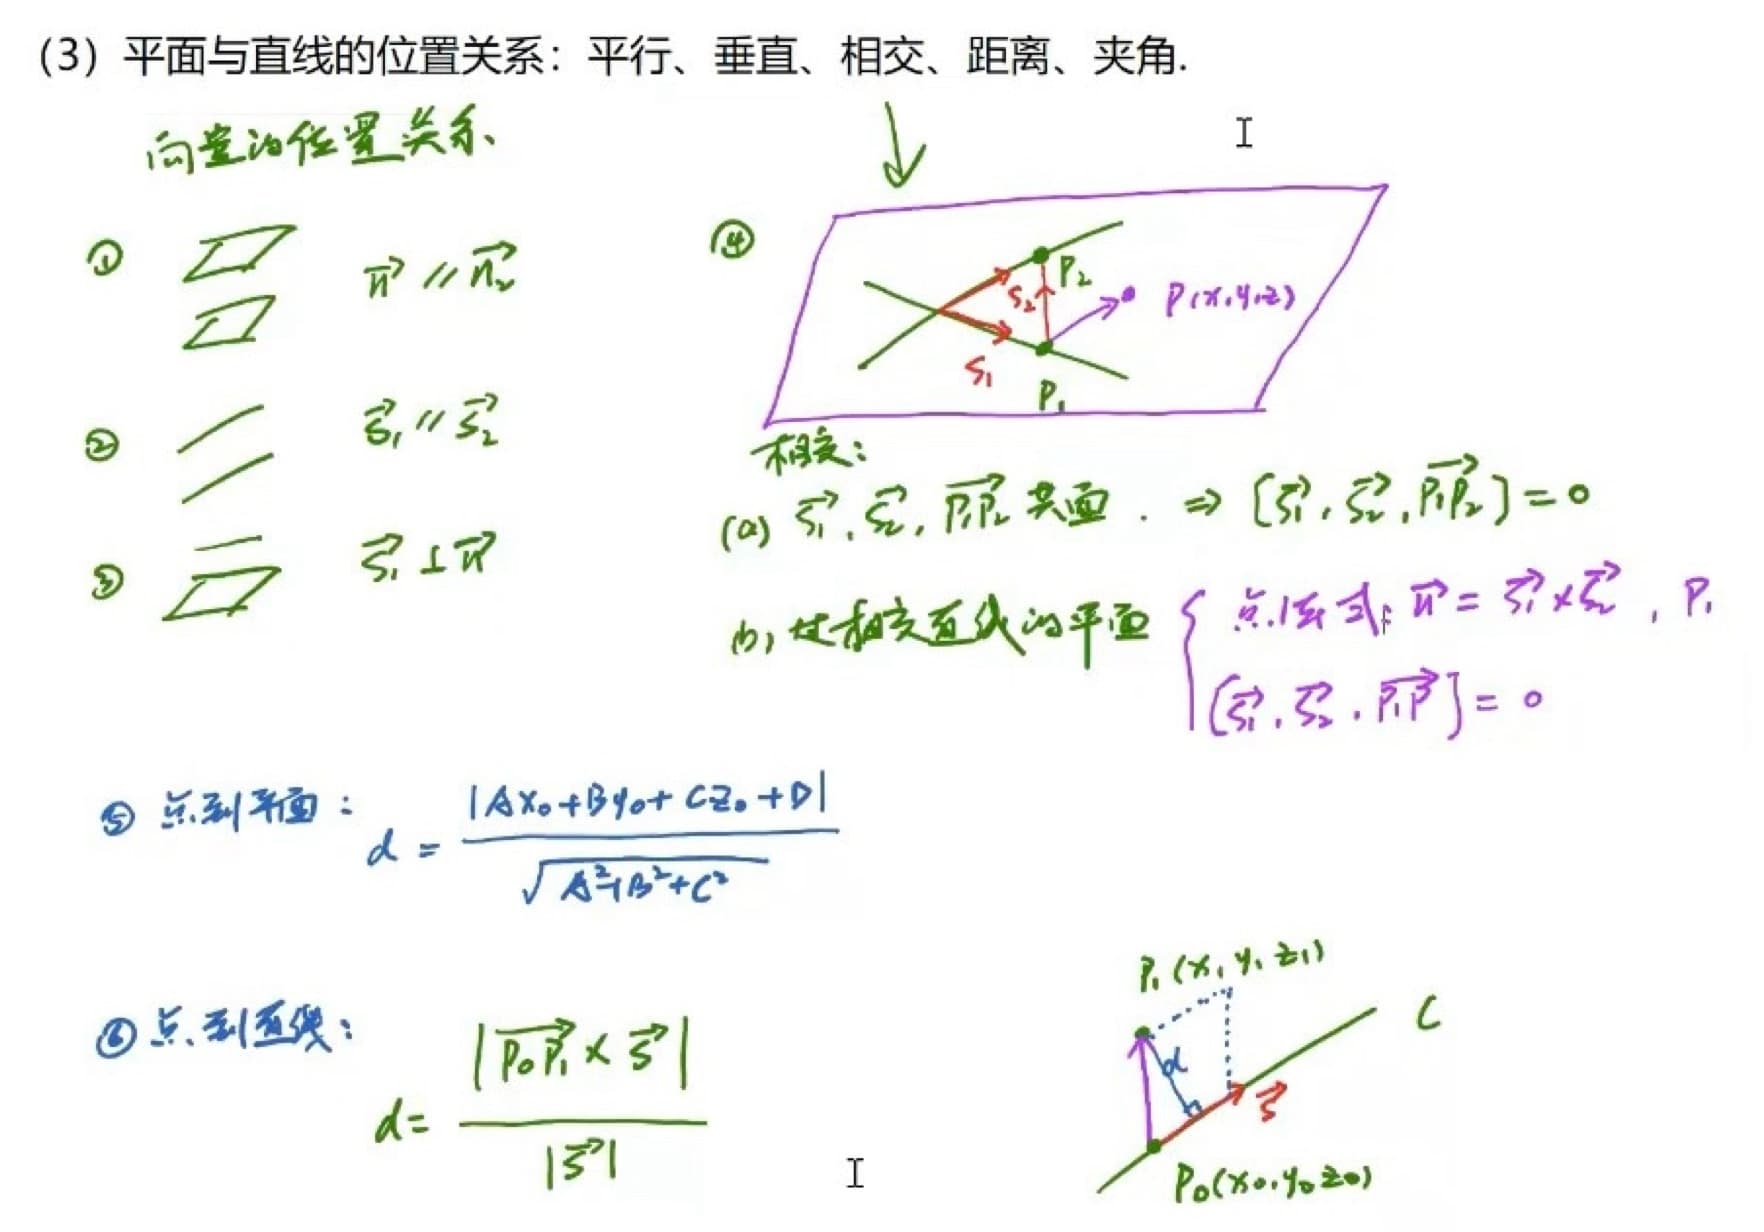 (3) 平面与直线的位置关系：平行、垂直、相交、距离、夹角.
向量的位置关系、
① n⃗ // n⃗₂
② s⃗₁ // s⃗₂
③ s⃗₁ ⊥ n⃗
④
P₂
S₂
P(x,y,z)
S₁
P₁
相交：
(a) s⃗₁, s⃗₂, P₁P₂⃗ 共面. ⇒ [s⃗₁, s⃗₂, P₁P₂⃗] = 0
(b) 过相交直线的平面 { 点法式: n⃗ = s⃗₁ × s⃗₂, P₁
[s⃗₁, s⃗₂, P₁P⃗] = 0
⑤ 点到平面： d = |Ax₀+By₀+Cz₀+D| / √(A²+B²+C²)
⑥ 点到直线： d = |P₀P₁⃗ × s⃗| / |s⃗|
P₁(x₁ y₁ z₁)
L
d
s⃗
P₀(x₀,y₀ z₀)